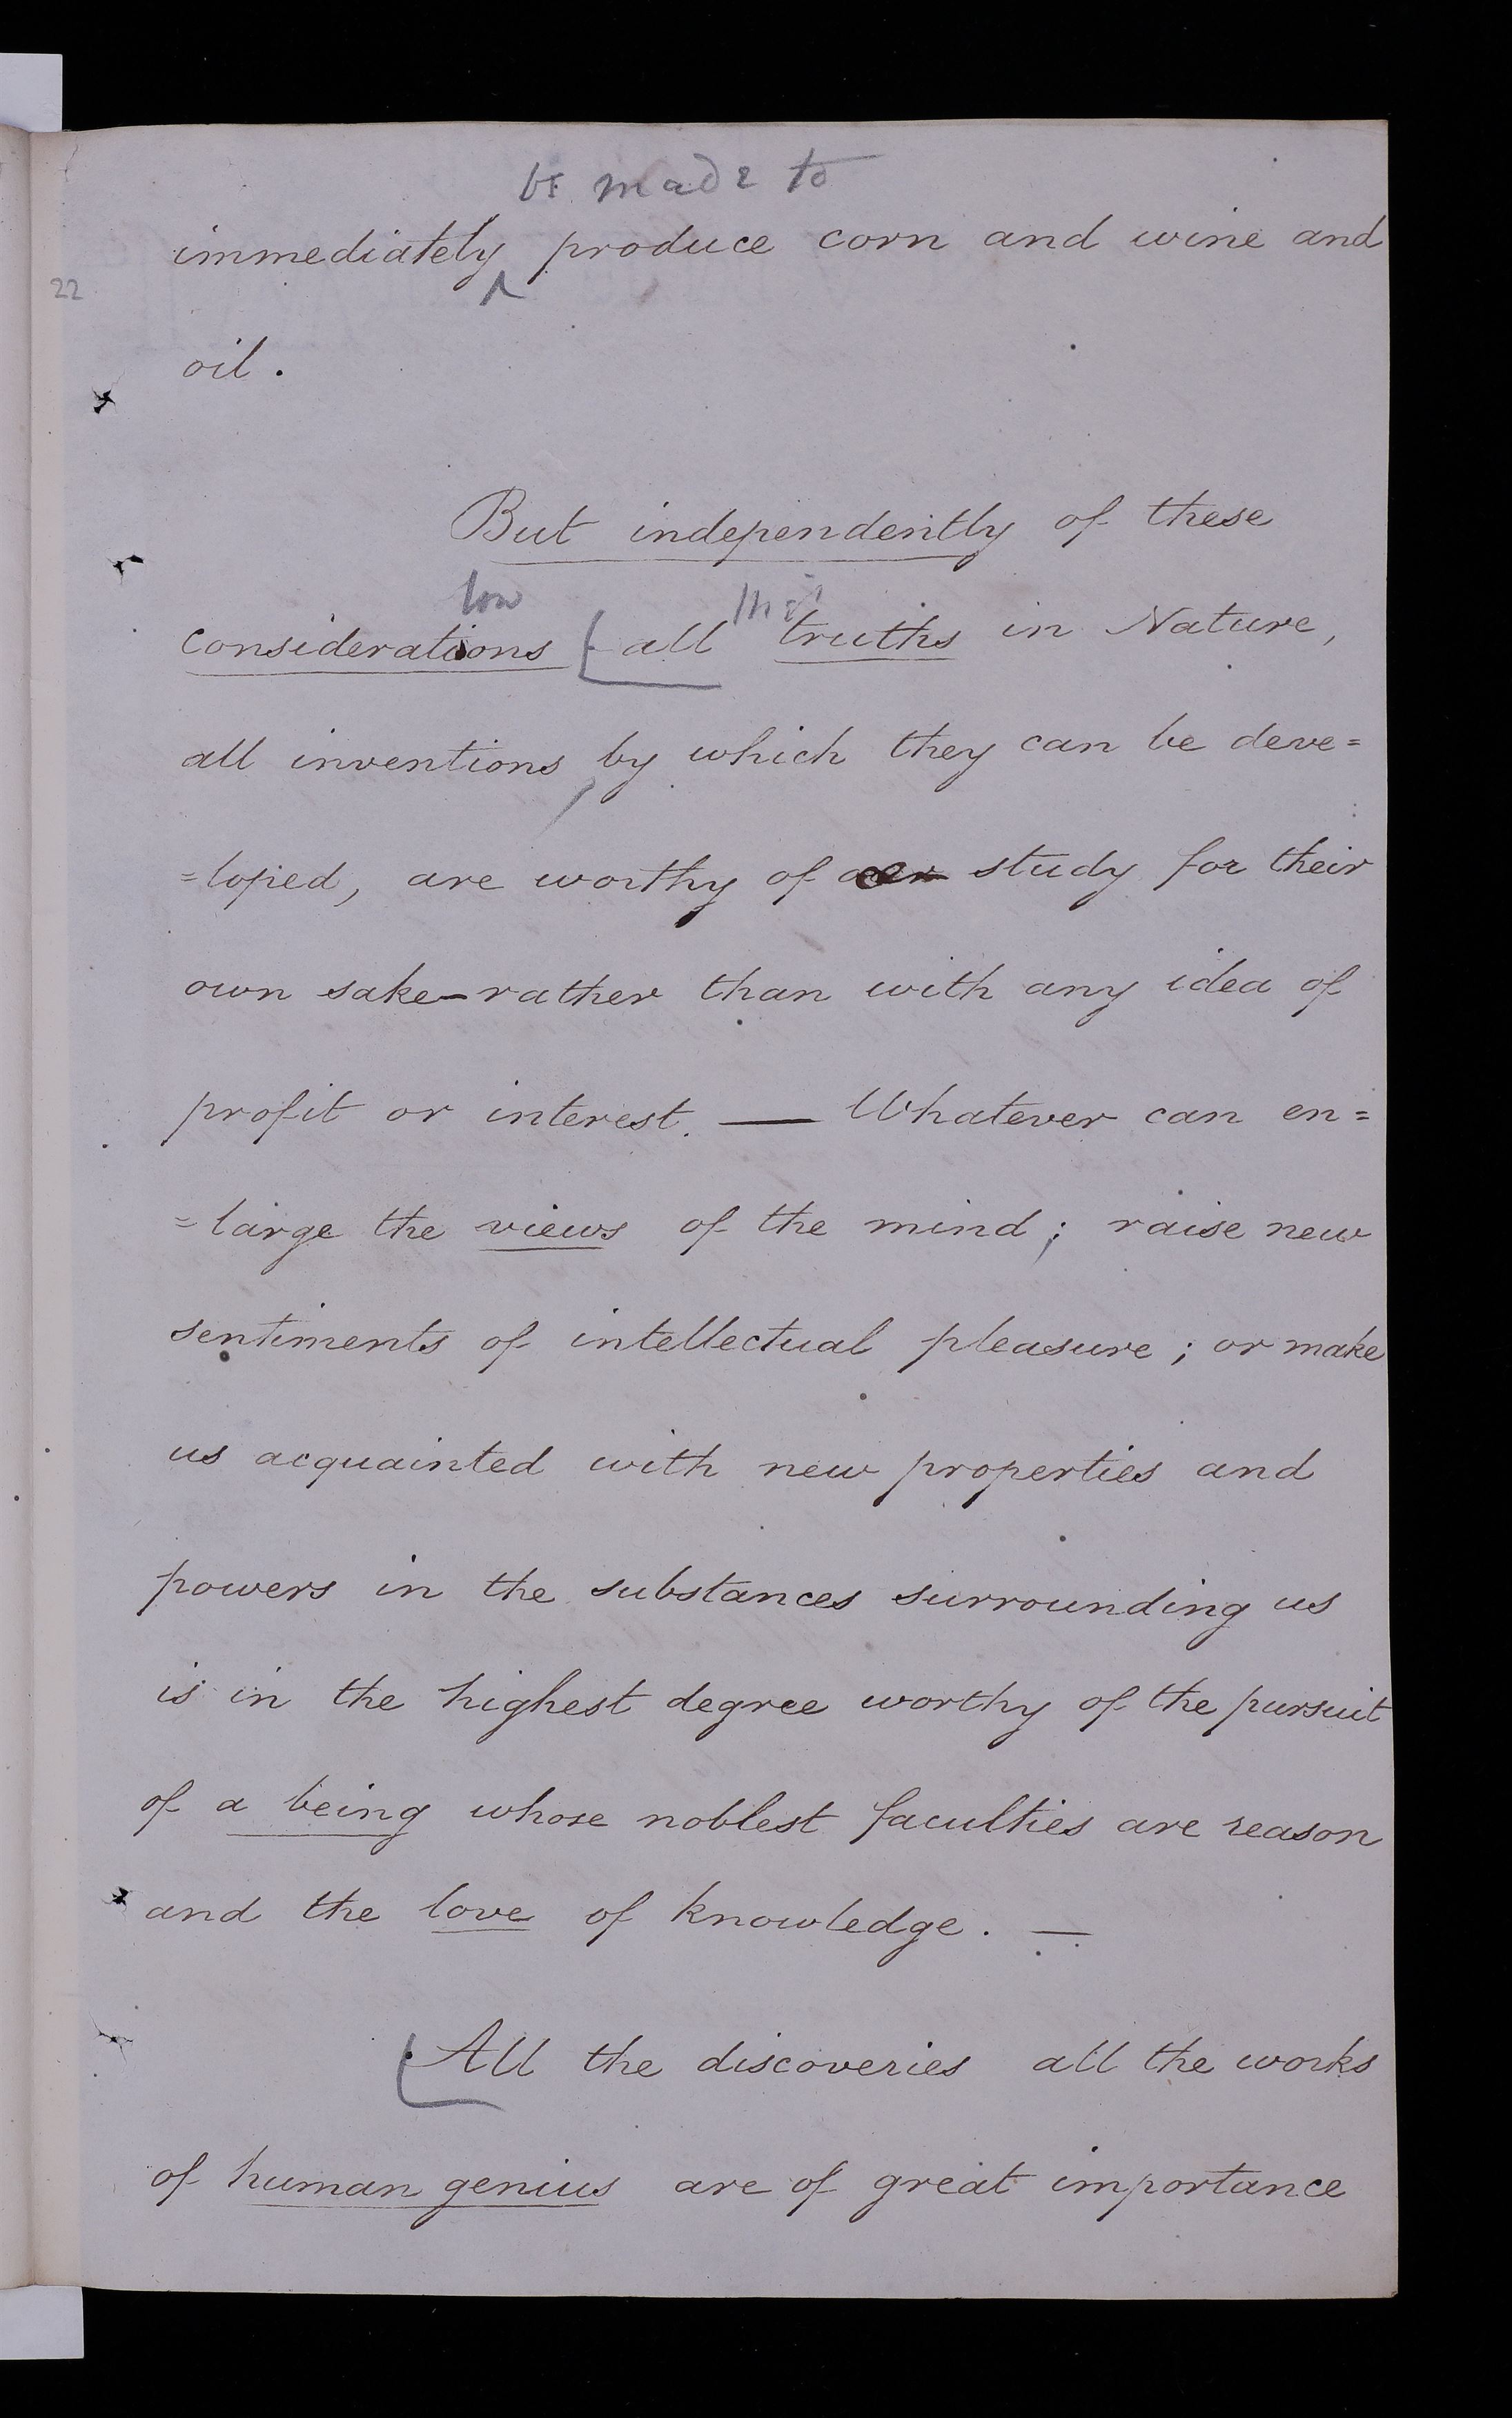 be made to
immediately produce corn and wine and
22
oil.
But independently of these
low
considerations all truths in Nature,
all inventions by which they can be deve=
=loped, are worthy of study for their
own sake-rather than with any idea of
profit or interest. — Whatever can en=
=large the views of the mind; raise new
sentiments of intellectual pleasure; or make
us acquainted with new properties and
powers in the substances surrounding us
is in the highest degree worthy of the pursuit
of a being whose noblest faculties are reason
and the love of knowledge. —
All the discoveries all the works
of human genius are of great importance